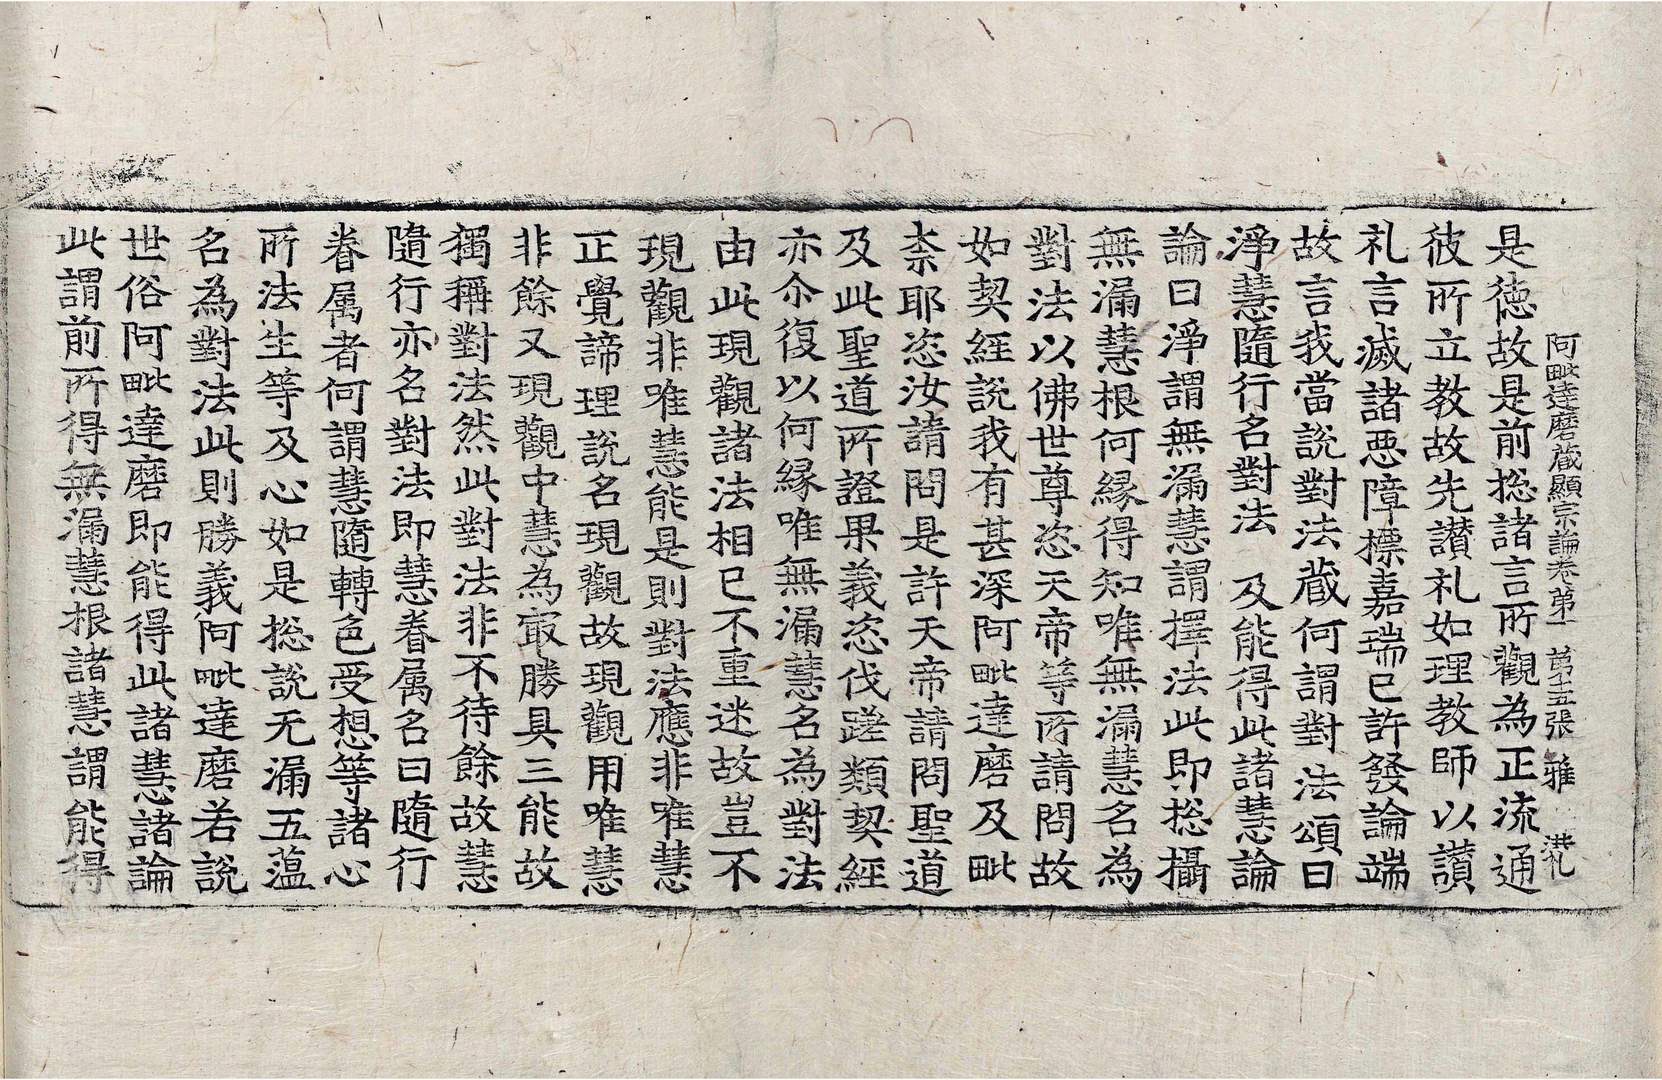 阿毗達磨藏顯宗論卷第一 第十五張 雅
是徳故是前捴諸言所觀為正流通
彼所立教故先讃礼如理教師以讃
礼言滅諸惡障標嘉瑞已許發論端
故言我當說對法藏何謂對法頌曰
淨慧隨行名對法 及能得此諸慧論
論曰淨謂無漏慧謂擇法此即捴攝
無漏慧根何縁得知唯無漏慧名為
對法以佛世尊恣天帝等所請問故
如契經說我有甚深阿毗達磨及毗
柰耶恣汝請問是許天帝請問聖道
及此聖道所證果義恣伐蹉類契經
亦尒復以何縁唯無漏慧名為對法
由此現觀諸法相已不重迷故豈不
現觀非唯慧能是則對法應非唯慧
正覺諦理說名現觀故現觀用唯慧
非餘又現觀中慧為㝡勝具三能故
獨稱對法然此對法非不待餘故慧
隨行亦名對法即慧眷属名曰隨行
眷属者何謂慧隨轉色受想等諸心
所法生等及心如是捴說无漏五蕰
名為對法此則勝義阿毗達磨若說
世俗阿毗達磨即能得此諸慧諸論
此謂前所得無漏慧根諸慧謂能得